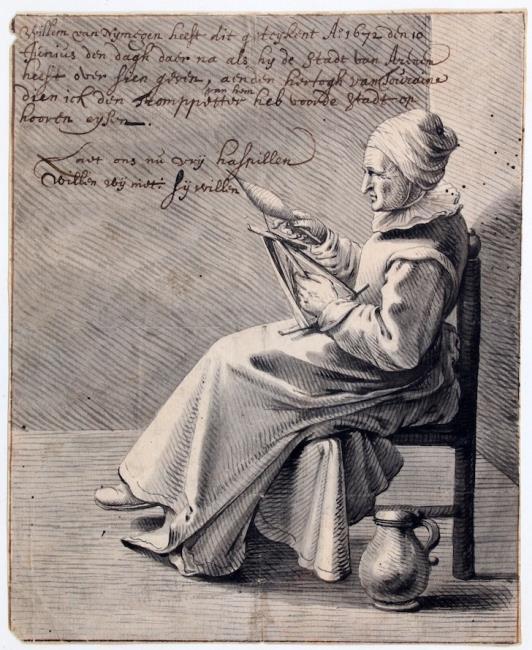 Willem van Nymegen heeft dit geteykent Aº 1672 den 10
Junius den dagh daer na als hy de Stadt van Arnem
heeft over sien geven, aenden hertogh van Touraine
dien ick den Tromppetter van hem heb voorde Stadt op
hooren eysen.
Laet ons nu vrij haspillen
Willen wij niet. sij willen